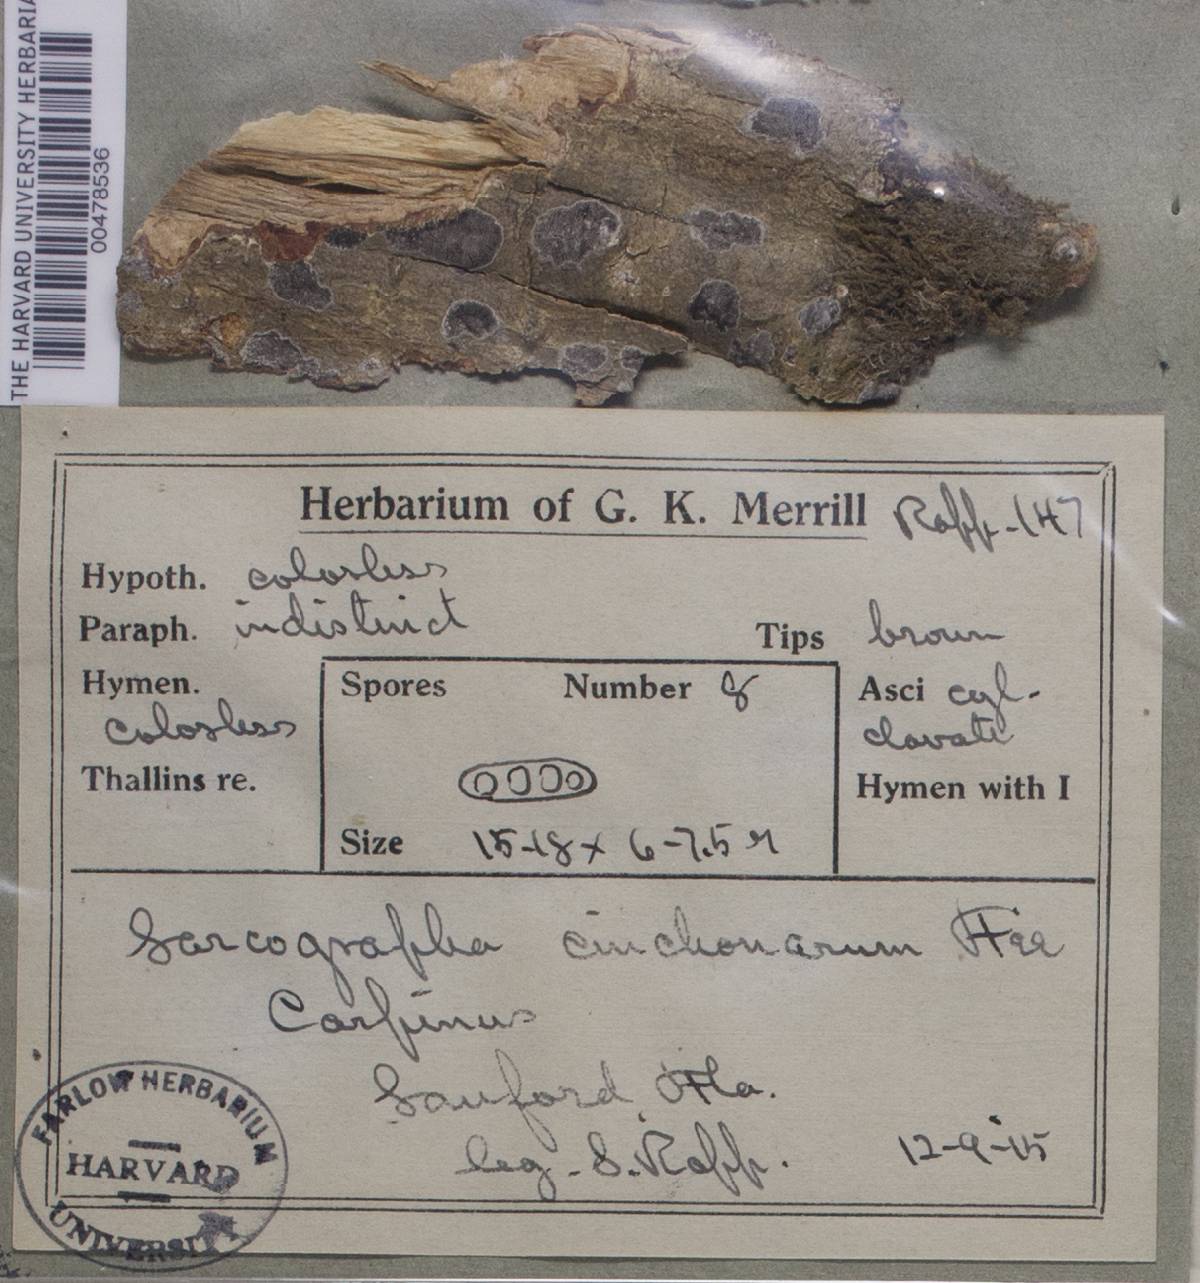 THE HARVARD UNIVERSITY HERBARIA
00478536
Herbarium of G. K. Merrill Rapp-147
Hypoth. colorless
Paraph. indistinct
Tips brown
Hymen. colorless
Spores Number 8
Asci cyl-
clavate
Thallins re.
Hymen with I
Size 15-18 x 6-7.5 µ
Sarcographa cinchonarum Fée
Carpinus
Sanford, Fla.
leg. S. Rapp.
12-9-15
FARLOW HERBARIUM
HARVARD
UNIVERSITY